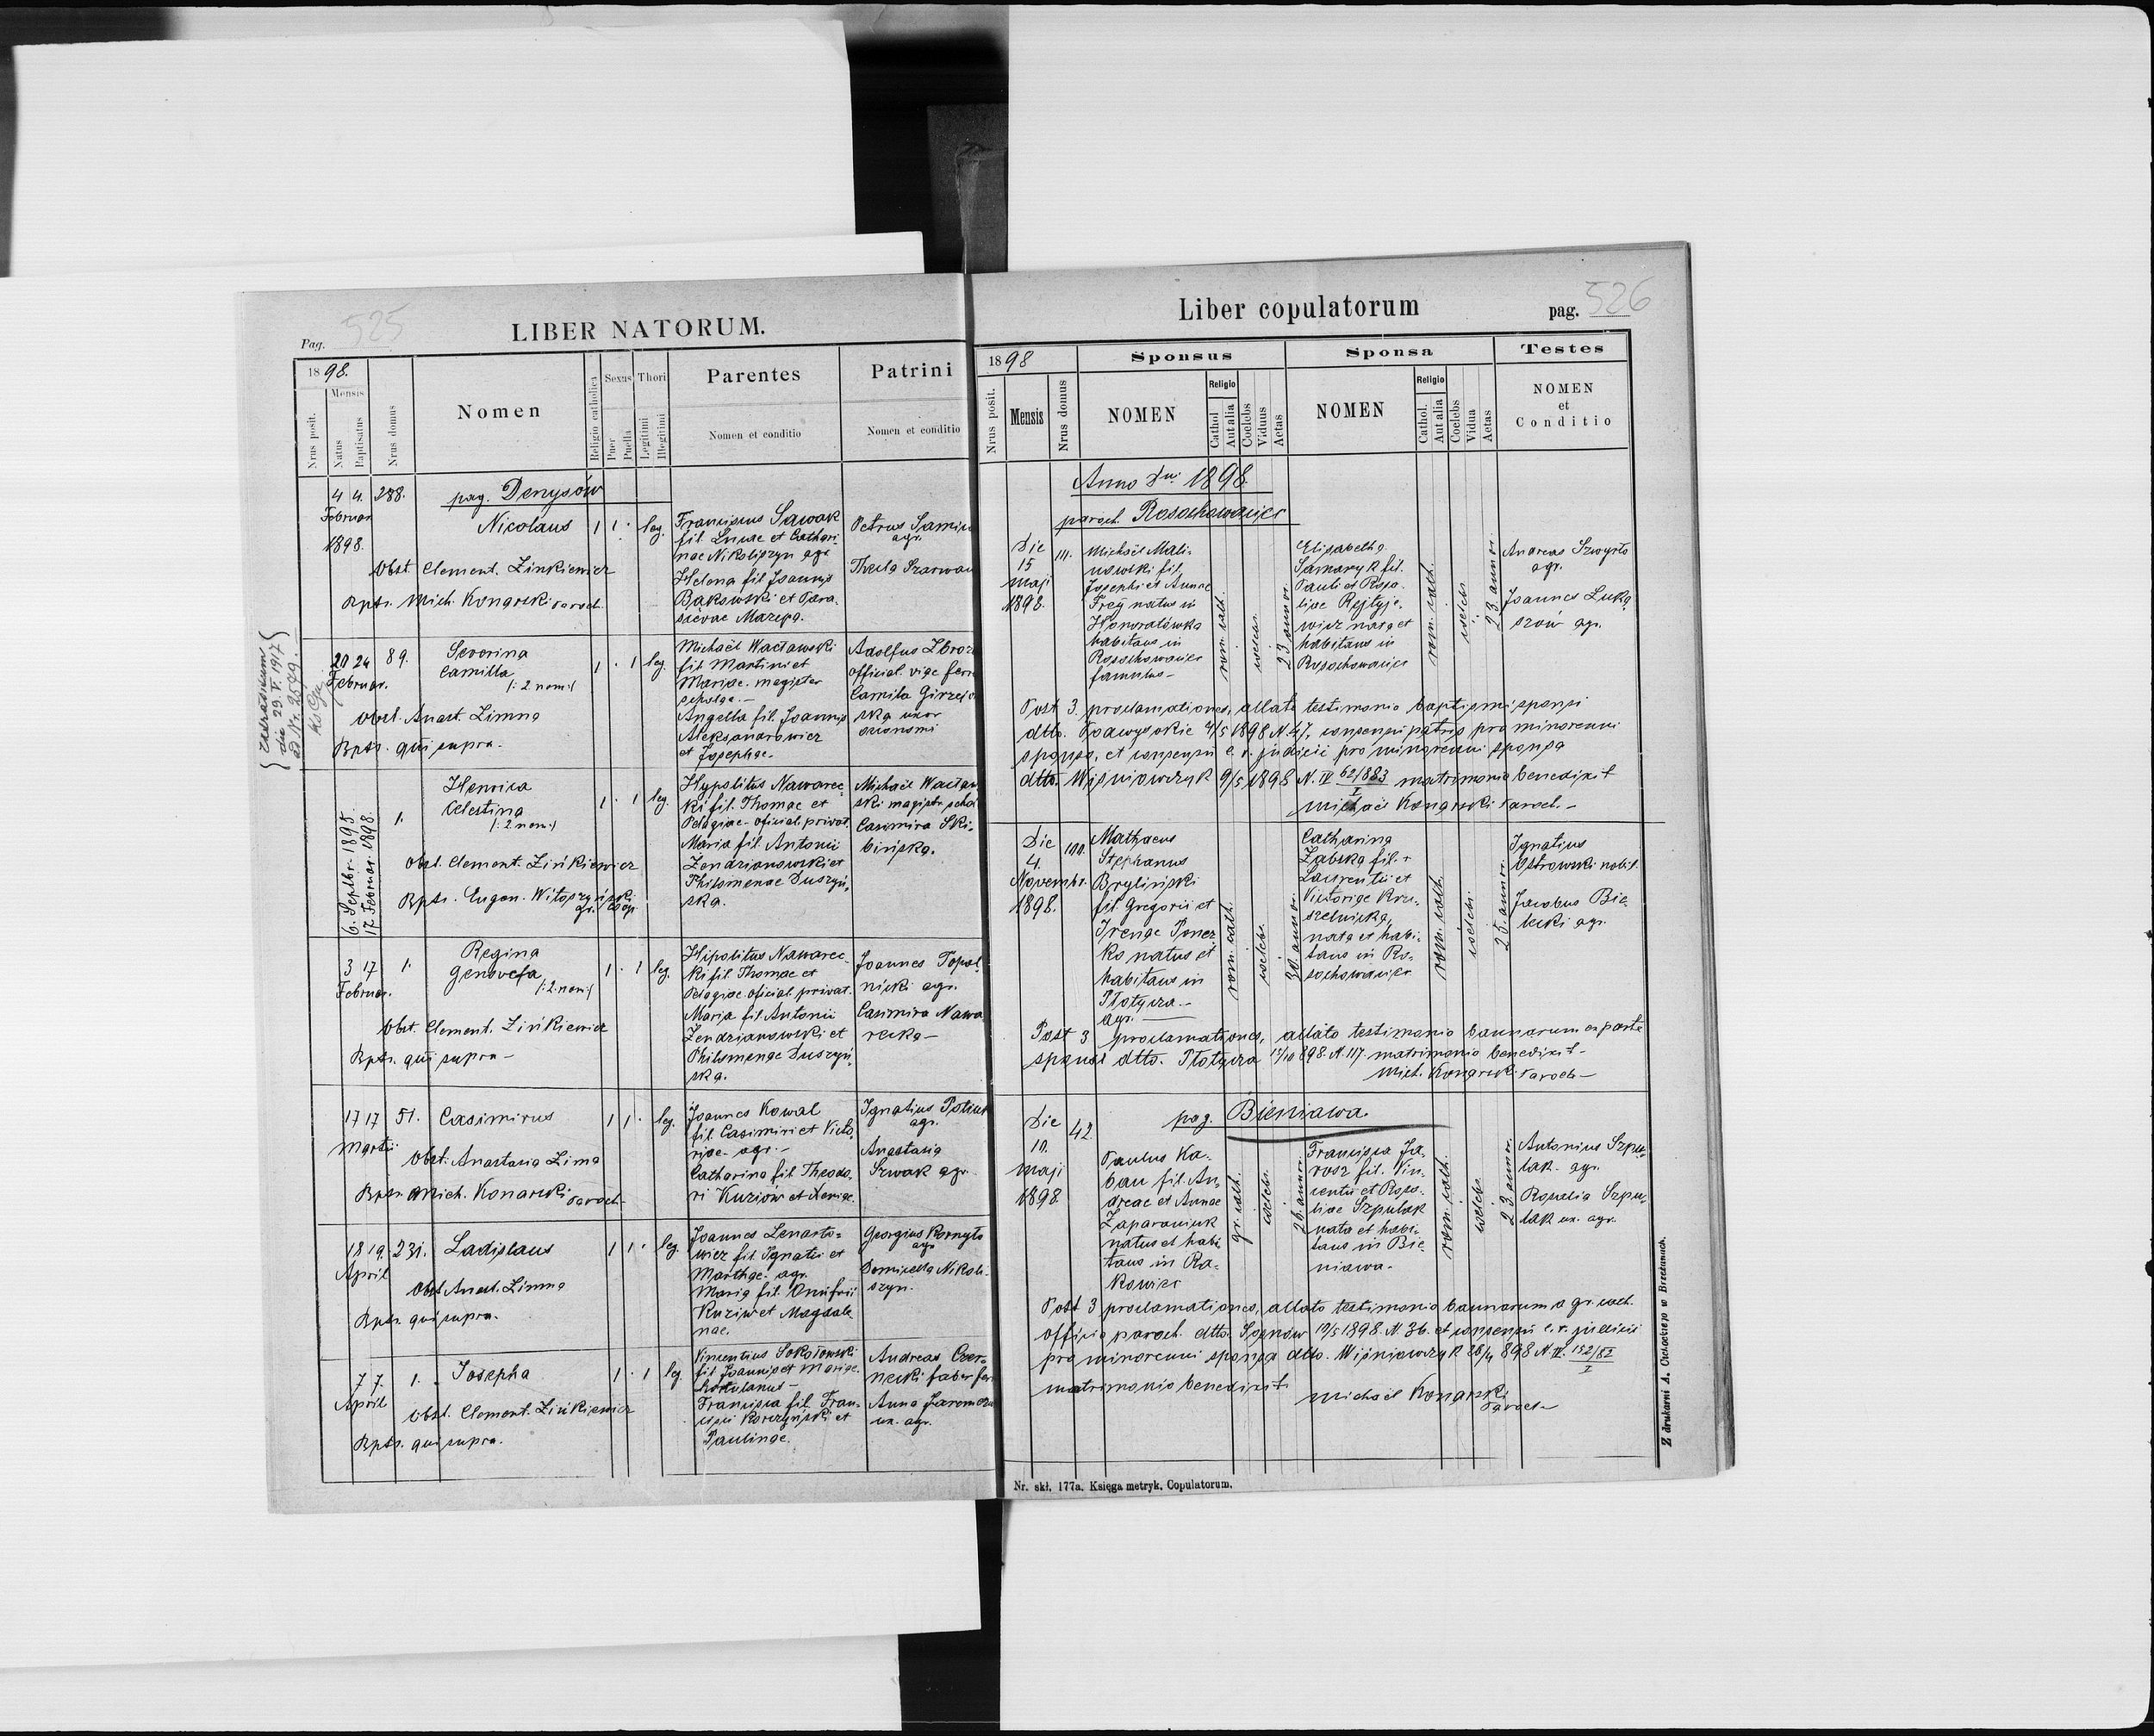 Pag. 525
LIBER NATORUM.
1898.
Mensis
Nrus posit.
Natus
Baptisatus
Nrus domus
Nomen
Religio catholica
Sexus
Puer
Puella
Thori
Legitimi
Illegitimi
Parentes
Nomen et conditio
Patrini
Nomen et conditio
pag. Denysów
4 4. 288.
Februar
1898.
Nicolaus 1 1 · leg.
Obst. Clement. Zinkiewicz
Bpts. Mich. Konarski Paroch.
Franciscus Sawak
fil. Lucae et Cathari
nae Nikoliszyn agr
Helena fil Joannis
Bąkowski et Para-
scevae Mazepa.
Petrus
agr.
Thecla
Zaślubieni
die 29. V. 1917
20 24 89.
Februar.
Severina
Camilla
/: 2 nom :/
1 · 1 leg.
Obst. Anast. Zimna
Bpts. qui supra.
Michaël Wacławski
fil Martini et
Mariae. magister
scholae.—
Angella fil. Joannis
Aleksandrowicz
et Josephae.
Adolfus
official. vige
Camila
ska uxor
oeconomi
6. Septbr. 1895.
17 Februar 1898.
1.
Henrica
Celestina
/: 2 nom :/
1 · 1 leg.
Obst. Clement. Zińkiewicz
Bpts. Eugen. Witoszyński
Hypolitus Nawarec-
ki fil. Thomae et
Pelagiae - oficial. privat.
Maria fil. Antonii
Zendzianowski et
Philomenae Duszyń-
ska.
Michaël Wacław
ski magistr. schol
Casimira Ski-
bińska.
3 17 1.
Februar.
Regina
Genovefa
/: 2. nom :/
1 · 1 leg.
Obst. Clement. Zińkiewicz
Bpts. qui supra —
Hipolitus Nawarec-
ki fil Thomae et
Pelagiae oficial. privat.
Maria fil Antonii
Zendzianowski et
Philomenae Duszyń
ska.
Joannes Topol
nicki agr.
Casimira Nawa
recka —
17 17 51.
Martii
Casimirus 1 1 · leg.
Obst. Anastasia Zima
Bpts. Mich. Konarski Paroch
Joannes Kowal
fil. Casimiri et Victo-
riae - agr. -
Catharina fil Theodo-
ri Kuziów et Xeniae.
Ignatius
agr.
Anastasia
Szwak agr.
18 19. 231.
April
Ladislaus 1 1 · leg.
Obst Anast. Zimna
Bpts. qui supra.
Joannes Lenarto-
wicz fil Ignatii et
Marthae. agr.
Maria fil. Onufrii
Kuziw et Magdale
nae.
Georgius Kornyło
agr
Dominella Nikoli-
szyn.
7 7. 1.
April
Josepha 1 · 1 leg.
Obst. Clement. Zińkiewicz
Bpts. qui supra.
Vincentius Sokołowski
fil Joannis et Mariae.
hortulanus —
Francisca fil. Fran-
cisci Korczyński et
Paulinae.
Andreas Czer-
necki faber fer
Anna
ux. agr.
Liber copulatorum
pag. 526
1898
Nrus posit.
Mensis
Nrus domus
Sponsus
NOMEN
Religio
Cathol
Aut alia
Coelebs
Viduus
Aetas
Sponsa
NOMEN
Religio
Cathol.
Aut alia
Coelebs
Vidua
Aetas
Testes
NOMEN
et
Conditio
Anno Dni 1898.
paroch. Rosochowaciec
Die
15
Maji
1898.
111.
Michaël Mali-
nowski fil.
Josephi et Annae
Frey natus in
Honoratówka
habitans in
Rosochowaciec
famulus —
rom. cath.
coelebs.
23 annor.
Elisabetha
Samaryk fil.
Pauli et Rosa-
liae Rejtyje-
wicz nata et
habitans in
Rosochowaciec
rom. cath.
coelebs
23 annor.
Andreas Szwyrło
agr.
Joannes Luka
szów agr.
Post 3. proclamationes, allato testimonio baptismi sponsi
dtto. Podwysokie 4/5 1898 N. 47, consensu patris pro minorenni
sponso, et consensu c. r. judicii pro minorenni sponsa
dtto. Wiśniowczyk 9/5 1898 N. IV 62/883 / I matrimonio benedixit
Michaël Konarski Paroch.—
Die
4.
Novembr.
1898.
100.
Mathaeus
Stephanus
Bryliński
fil. Gregorii et
Irenae Poner
ko natus et
habitans in
Płotycza.—
agr.
rom. cath.
coelebs.
30 annor.
Catharina
Zabska fil. +
Laurentii et
Victoriae Kru-
szelnicka,
nata et habi-
tans in Ro-
sochowaciec
rom. cath.
coelebs.
25. annor.
Ignatius
Ostrowski nobil.
Jacobus Bie-
lecki agr.
Post 3 proclamationes, allato testimonio bannorum ex parte
sponsi dtto. Płotycza 15/10 898. N. 117. matrimonio benedixit —
Mich. Konarski Paroch —
pag. Bieniawa.
Die
10.
Maji
1898.
42.
Paulus Ka-
ban fil. An-
dreae et Annae
Zaparaniuk
natus et habi
tans in Ra-
kowiec
gr. cath.
coelebs.
26. annor.
Francisca Ja-
rosz fil. Vin-
centii et Rosa-
liae Szpulak
nata et habi-
tans in Bie-
niawa.
rom. cath.
coelebs.
23 annor.
Antonius Szpu-
lak agr.
Rosalia Szpu-
lak ux. agr.
Post 3 proclamationes, allato testimonio bannorum a gr. cath.
officio paroch. dtto. Sosnów 10/5 1898. N. 36. et consensu c. r. judicii
pro minorenni sponsa dtto. Wiśniowczyk 26/4 898 N. IV. 152/82 / I
matrimonio benedixit.
Michaël Konarski
Paroch—
Nr. skł. 177a. Księga metryk. Copulatorum.
Z drukarni A. Cieśackiego w Brzeżanach.